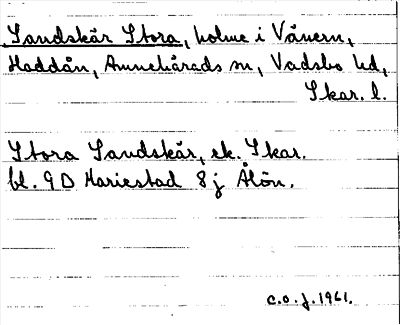 Sandskär Stora, holme i Vänern,
Haddån, Amnehärads sn, Vadsbo hd,
Skar. l.
Stora Sandskär, ek. Skar.
bl. 9D Mariestad 8j Ålön.
C.O.J. 1961.